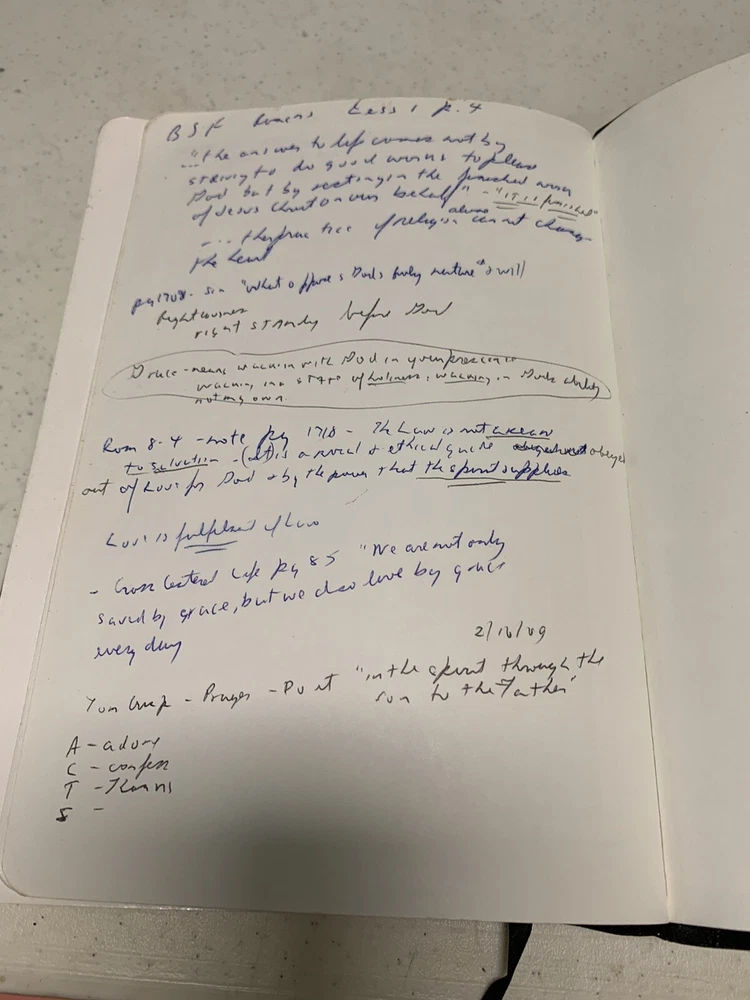 BSF Romans Less 1 p. 4
"... the answer to life comes not by
striving to do good works to please
God but by resting in the finished work
of Jesus Christ on our behalf" - "it is finished"
.... the practice of religion alone cannot change
the heart
pg 1708 - sin "what oppose s God's holy nature" & will
Righteousness
right standing before God
Grace - means walking with God in your presence
walking in a state of holiness, walking in God's ability
not my own
Rom 8-4 - note pg 1718 - The Law is not a mean
to salvation - (it) is a moral & ethical guide obeyed
out of Love for God & by the power that the spirit supplies
Love is fulfilment of Law
- Cross Centered Life pg 85 "We are not only
saved by grace, but we also live by grace
every day
2/10/09
- Prayer - Do it "in the spirit through the
son to the Father"
A - adore
C - confess
T - Thanks
S -